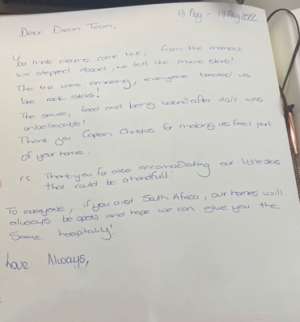 13 May - 19 May 2022
Dear Dream Team,
You have made come true, from the moment
we stepped aboard, we felt like movie stars!
The was amazing, everyone treated us
like rock stars!
The service, food and being looked after was
unbelievable!
Thank you Captain for making us feel part
of your home.
PS Thank you for also accommodating our little one
that could be a handful!
To everyone, if you visit South Africa, our homes will
always be open and hope we can give you the
same hospitality!
Love Always,